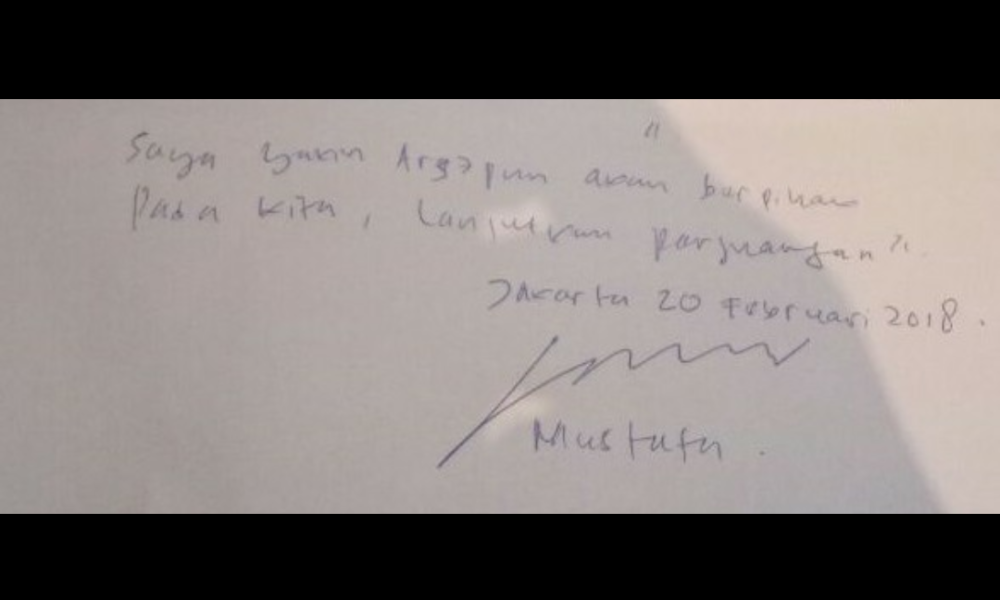 "
Saya yakin Argapun akan berpihak
pada kita, lanjutkan perjuangan".
Jakarta 20 Februari 2018.
Mustafa.